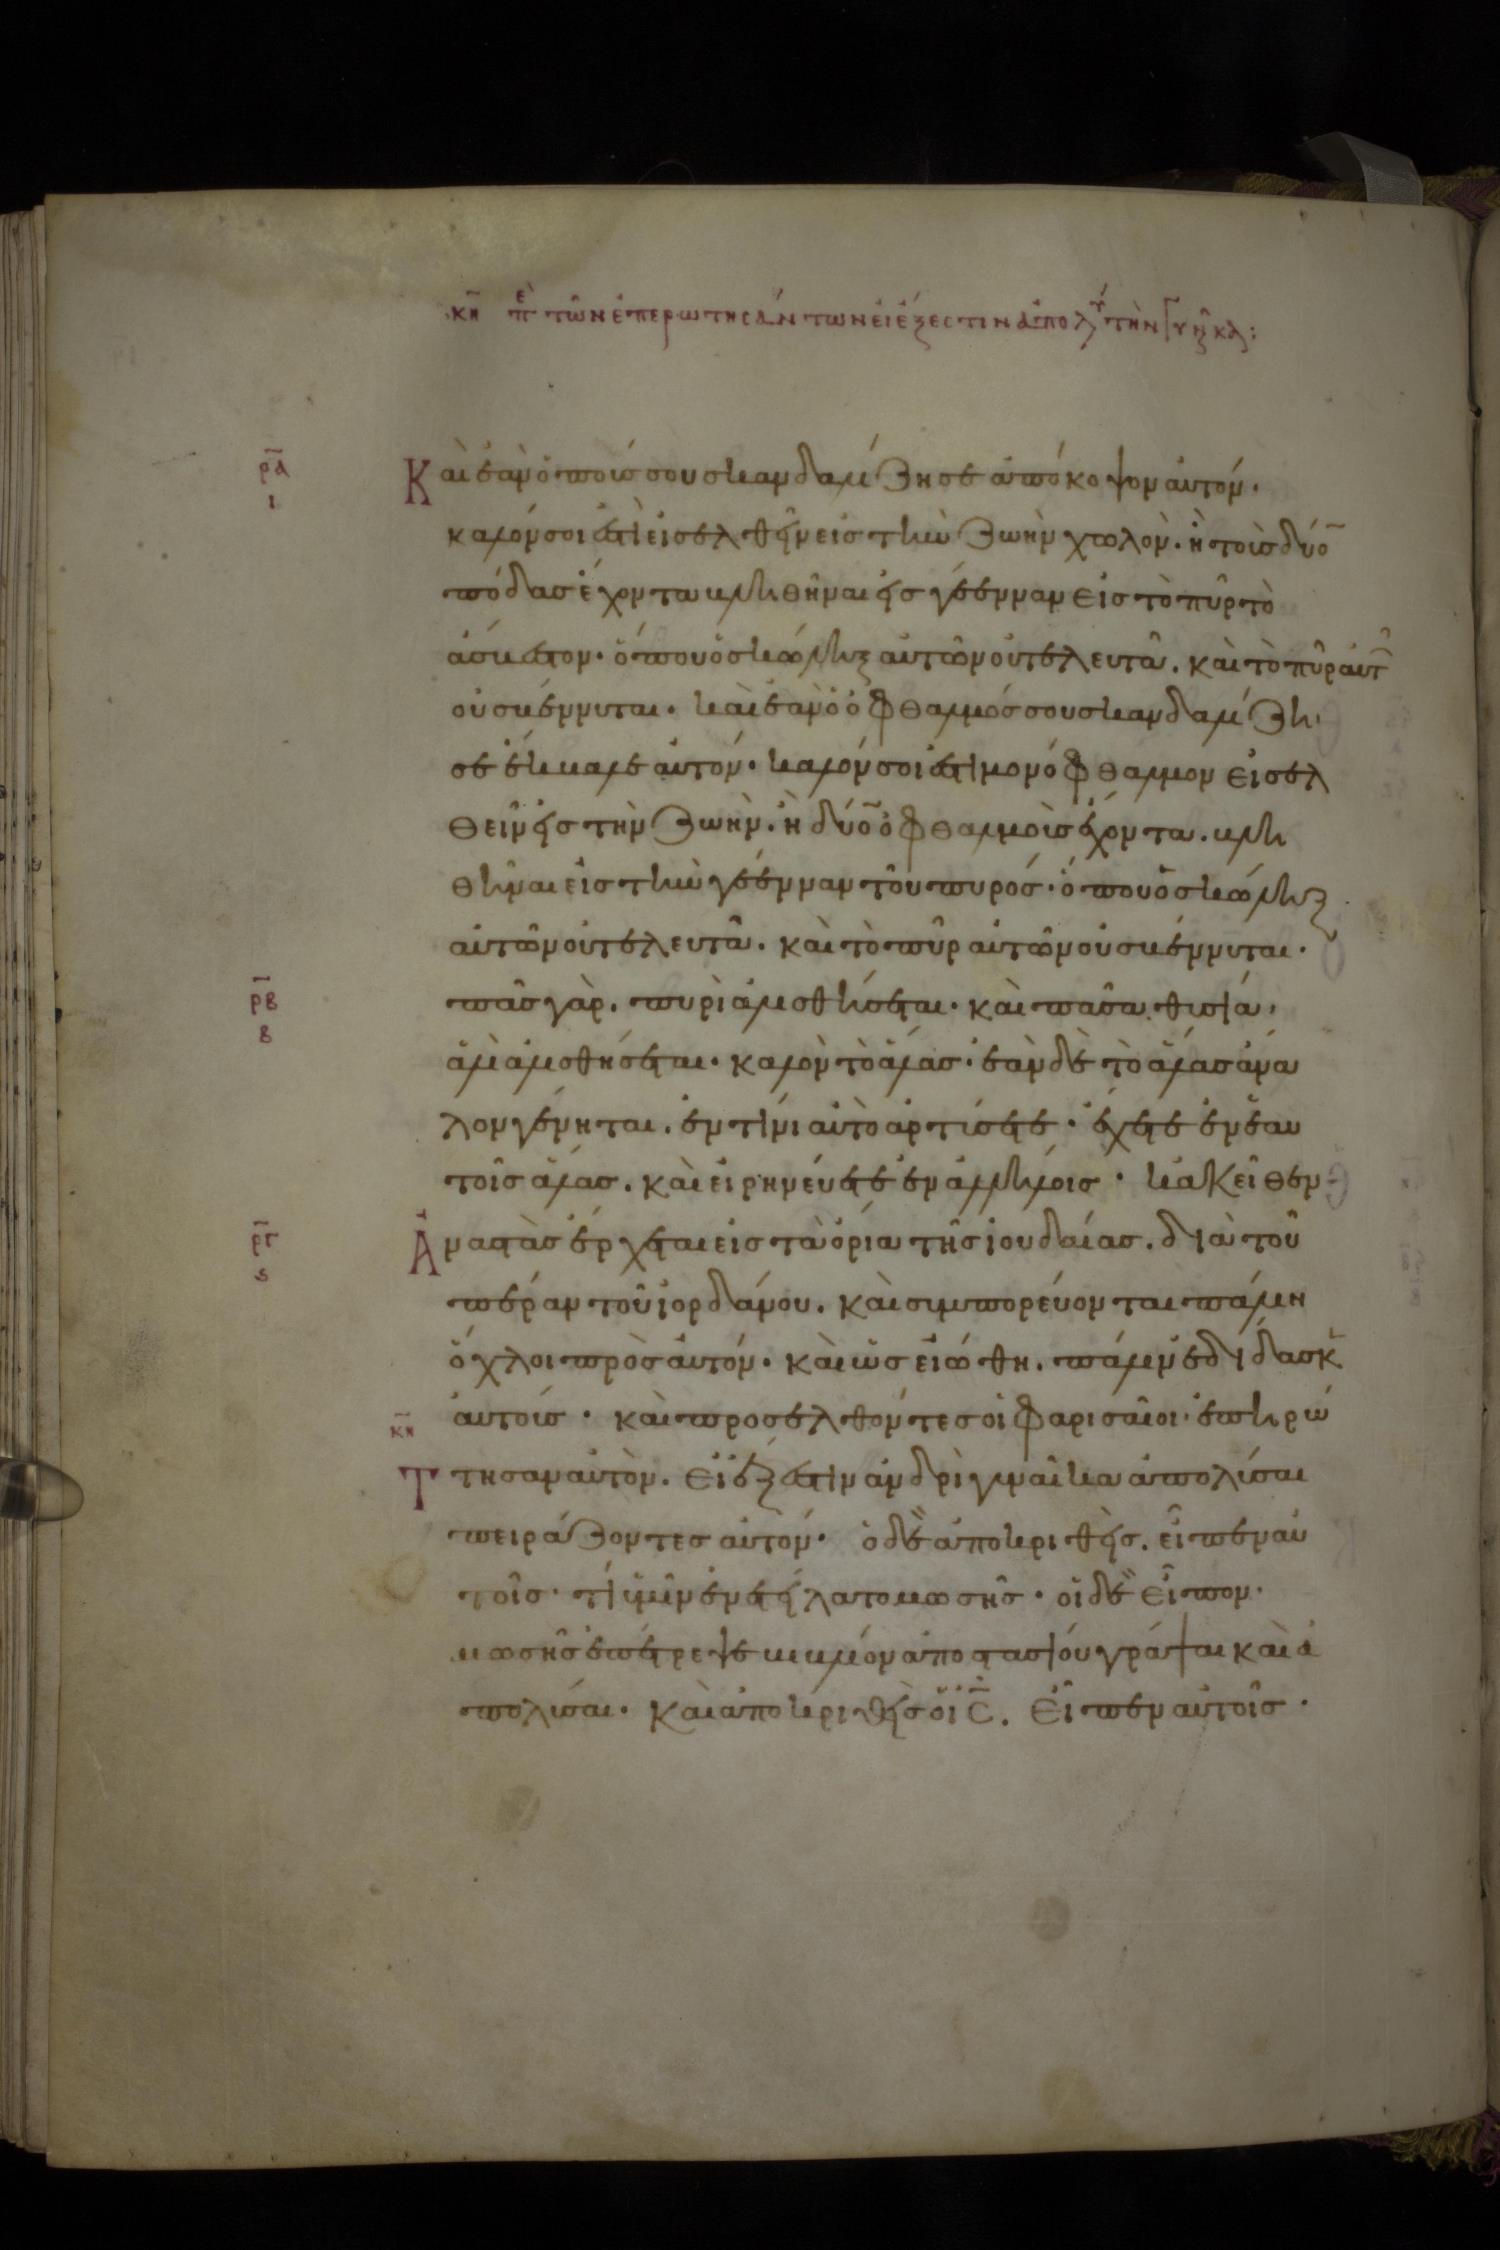 κη πε τῶν ἐπερωτησάντων εἰ ἔξεστιν ἀπολύ τὴν γυνῆκα:
ρα ι Καὶ ἐὰν ὁ πούσ σου σκανδαλίζη σε ἀπόκοψον αὐτόν.
καλόν σοι ἐστὶ εἰσελθεῖν εἰσ τὴν ζωὴν χωλὸν. ἢ τοὺσ δύο
πόδασ ἔχοντα βληθῆναι εἰσ γέενναν εἰσ τὸ πῦρ τὸ
ἄσβεστον. ὅπου ὁ σκώληξ αὐτῶν οὐ τελευτᾶ. καὶ τὸ πῦρ αὐτ
οὐ σβέννυται. καὶ ἐὰν ὁ ὀφθαλμόσ σου σκανδαλίζη
σε ἔκβαλε αὐτόν. καλόν σοι ἐστὶ μονόφθαλμον εἰσελ
θεῖν εἰσ τὴν ζωὴν. ἢ δύο ὀφθαλμοὺσ ἔχοντα. βλη
θῆναι εἰσ τὴν γέενναν τοῦ πυρόσ. ὅπου ὁ σκώληξ
αὐτῶν οὐ τελευτᾶ. καὶ τὸ πῦρ αὐτῶν οὐ σβέννυται.
ρβ β πᾶσ γὰρ. πυρὶ ἁλισθήσεται. καὶ πᾶσα θυσία,
ἁλὶ ἁλισθήσεται. καλὸν τὸ ἅλασ. ἐὰν δὲ τὸ ἅλασ ἄνα
λον γένηται. ἐν τίνι αὐτὸ ἀρτύσετε. ἔχετε ἐν ἑαυ
τοῖσ ἅλασ. καὶ εἰρηνεύετε ἐν ἀλλήλοισ. κἀκεῖθεν
ργ ς Ἀναστὰσ ἔρχεται εἰσ τὰ ὅρια τῆσ ἰουδαίασ. διὰ τοῦ
πέραν τοῦ ἰορδάνου. καὶ συμπορεύονται πάλιν
ὄχλοι πρὸσ αὐτόν. καὶ ὡσ εἰώθη. πάλιν ἐδίδασκ
αὐτούσ. καὶ προσελθόντεσ οἱ φαρισαῖοι. ἐπηρώ
κη Τ τησαν αὐτὸν. εἰ ἔξεστιν ἀνδρὶ γυναῖκα ἀπολῦσαι
πειράζοντεσ αὐτόν. ὁ δὲ ἀποκριθεὶσ. εἶπεν αὐ
τοῖσ. τί ὑμῖν ἐνετείλατο μωσῆσ. οἱ δὲ εἶπον.
μωσῆσ ἐπέτρεψε βιβλίον ἀποστασίου γράψαι καὶ ἀ
πολύσαι. καὶ ἀποκριθεὶσ ὁ ἰς. εἶπεν αὐτοῖσ.